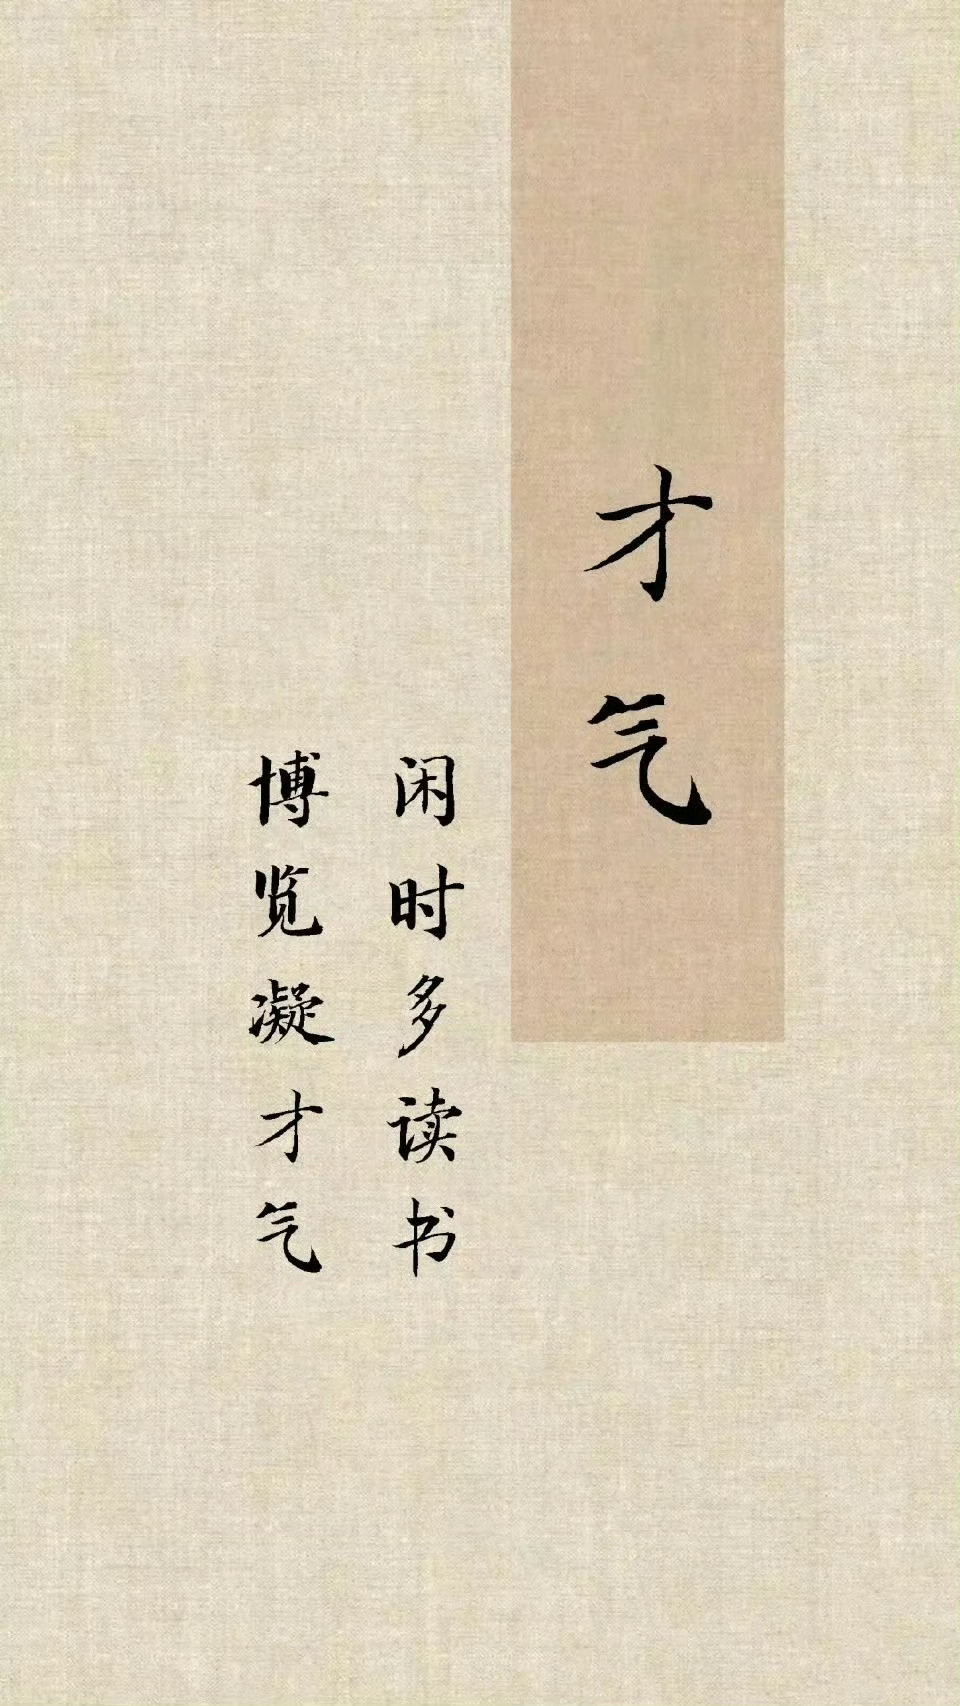 才气
闲时多读书
博览凝才气